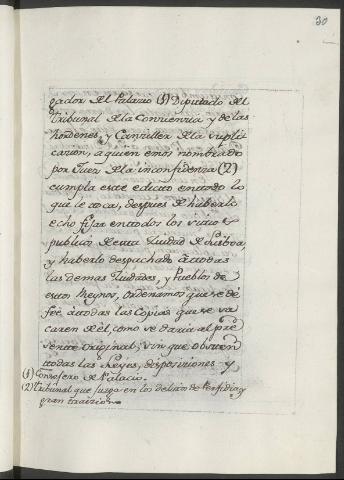 30
gador del Palacio (1) Diputado del
Tribunal de la Conciencia y de las
hordenes, y Canziller de la supli
cacion, a quien emos nombrado
por Juez de la inconfidenzia (2)
cumpla este edicto en todo lo
que le toca, despues de haberlo
echo fijar en todos los sitios
publicos de esta Ziudad de Lisboa,
y haberlo despachado a todas
las demas Ziudades, y Pueblos de
estos Reynos, ordenamos que se dé
feé a todas las Copias que se sa
caren de él, como se daria al pre
sente original, sin que obsten
todas las Leyes, disposiziones y
(1) Consejero de Palacio.
(2) Tribunal que juzga en los delitos de Perfidia, y
gran traizion